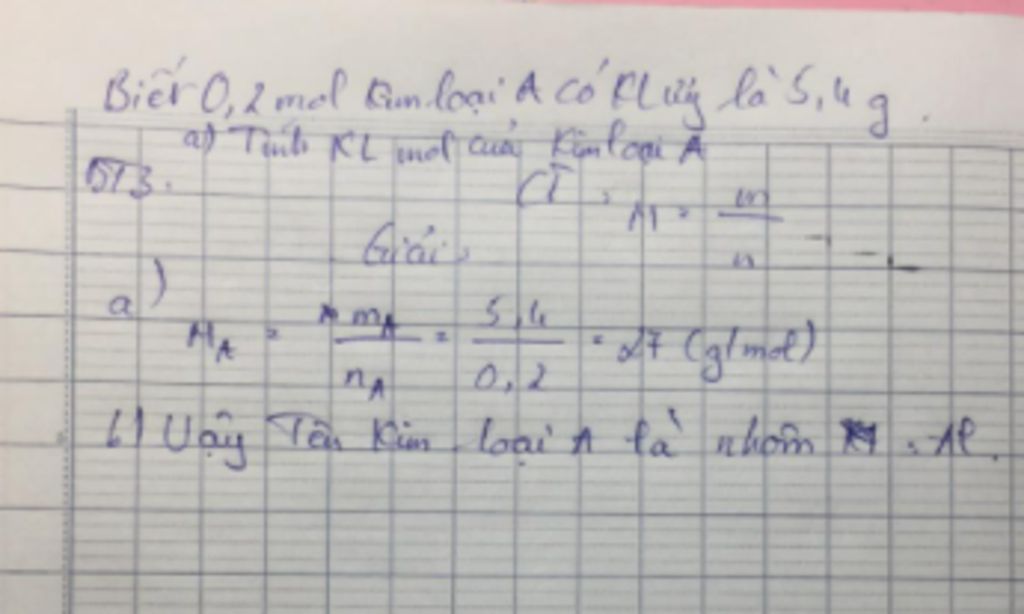 Biết 0,2 mol Kim loại A có KLượg là 5,4 g.
a) Tính KL mol của Kim loại A
BT3.
CT: M = m/n
Giải:
a)
M_A = m_A/n_A = 5,4/0,2 = 27 (g/mol)
b) Vậy Tên Kim loại A là nhôm : Al.